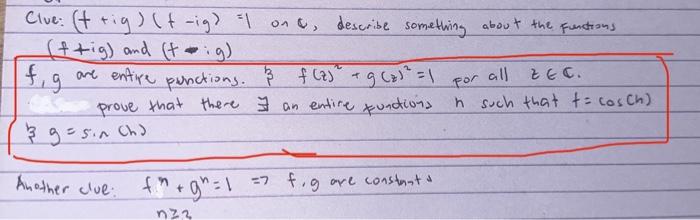 Clue: (f + ig)(f - ig) = 1 on ℂ, describe something about the functions
(f + ig) and (f - ig)
f, g are entire functions. & f(z)² + g(z)² = 1 for all z ∈ ℂ.
prove that there ∃ an entire functions h such that f = cos(h)
& g = sin(h)
Another clue: fⁿ + gⁿ = 1 => f, g are constants
n≥3